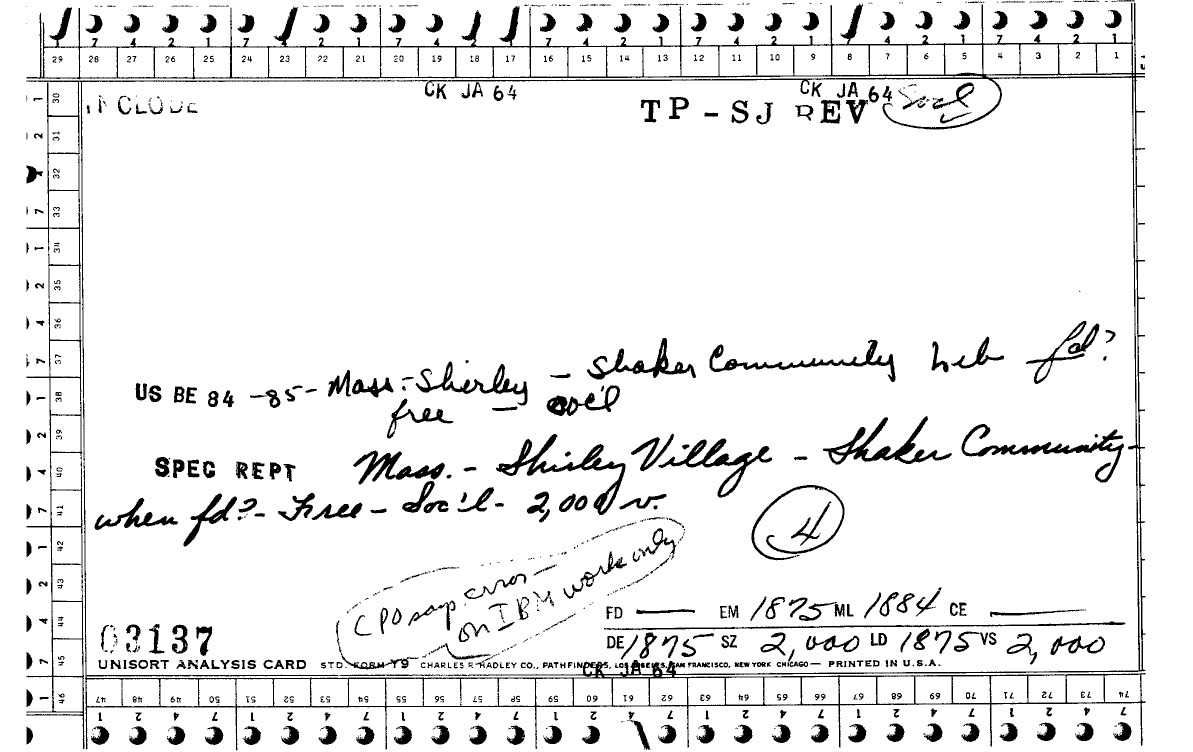 7 4 2 1 7 2 1 7 4 2 1 7 4 2 1 7 4 2 1 4 2 1 7 4 2 1
29 28 27 26 25 24 23 22 21 20 19 18 17 16 15 14 13 12 11 10 9 8 7 6 5 4 3 2 1
CK JA 64 CK JA 64
INCLUDE TP - SJ REV Soc'l
US BE 84 -85- Mass.- Shirley - Shaker Community Lib fd?
free - soc'l
SPEC REPT Mass. - Shirley Village - Shaker Community -
when fd? - Free - Soc'l - 2,000 v.
4
CPO says error -
on IBM work only
FD — EM 1875 ML 1884 CE —
03137 DE 1875 SZ 2,000 LD 1875 VS 2,000
UNISORT ANALYSIS CARD STD. FORM Y9 CHARLES R. HADLEY CO., PATHFINDERS, LOS ANGELES, SAN FRANCISCO, NEW YORK CHICAGO — PRINTED IN U.S.A.
CK JA 64
30 31 32 33 34 35 36 37 38 39 40 41 42 43 44 45 46
47 48 49 50 51 52 53 54 55 56 57 58 59 60 61 62 63 64 65 66 67 68 69 70 71 72 73 74